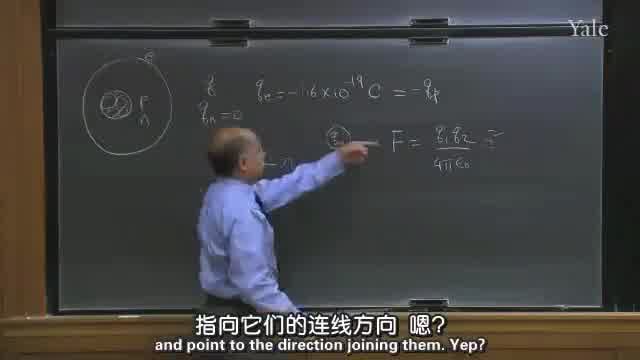 Yale
e
P
n
q qₑ = -1.6 × 10⁻¹⁹ C = -qₚ
qₙ = 0
F = q₁q₂ / 4πε₀
指向它们的连线方向 嗯?
and point to the direction joining them. Yep?